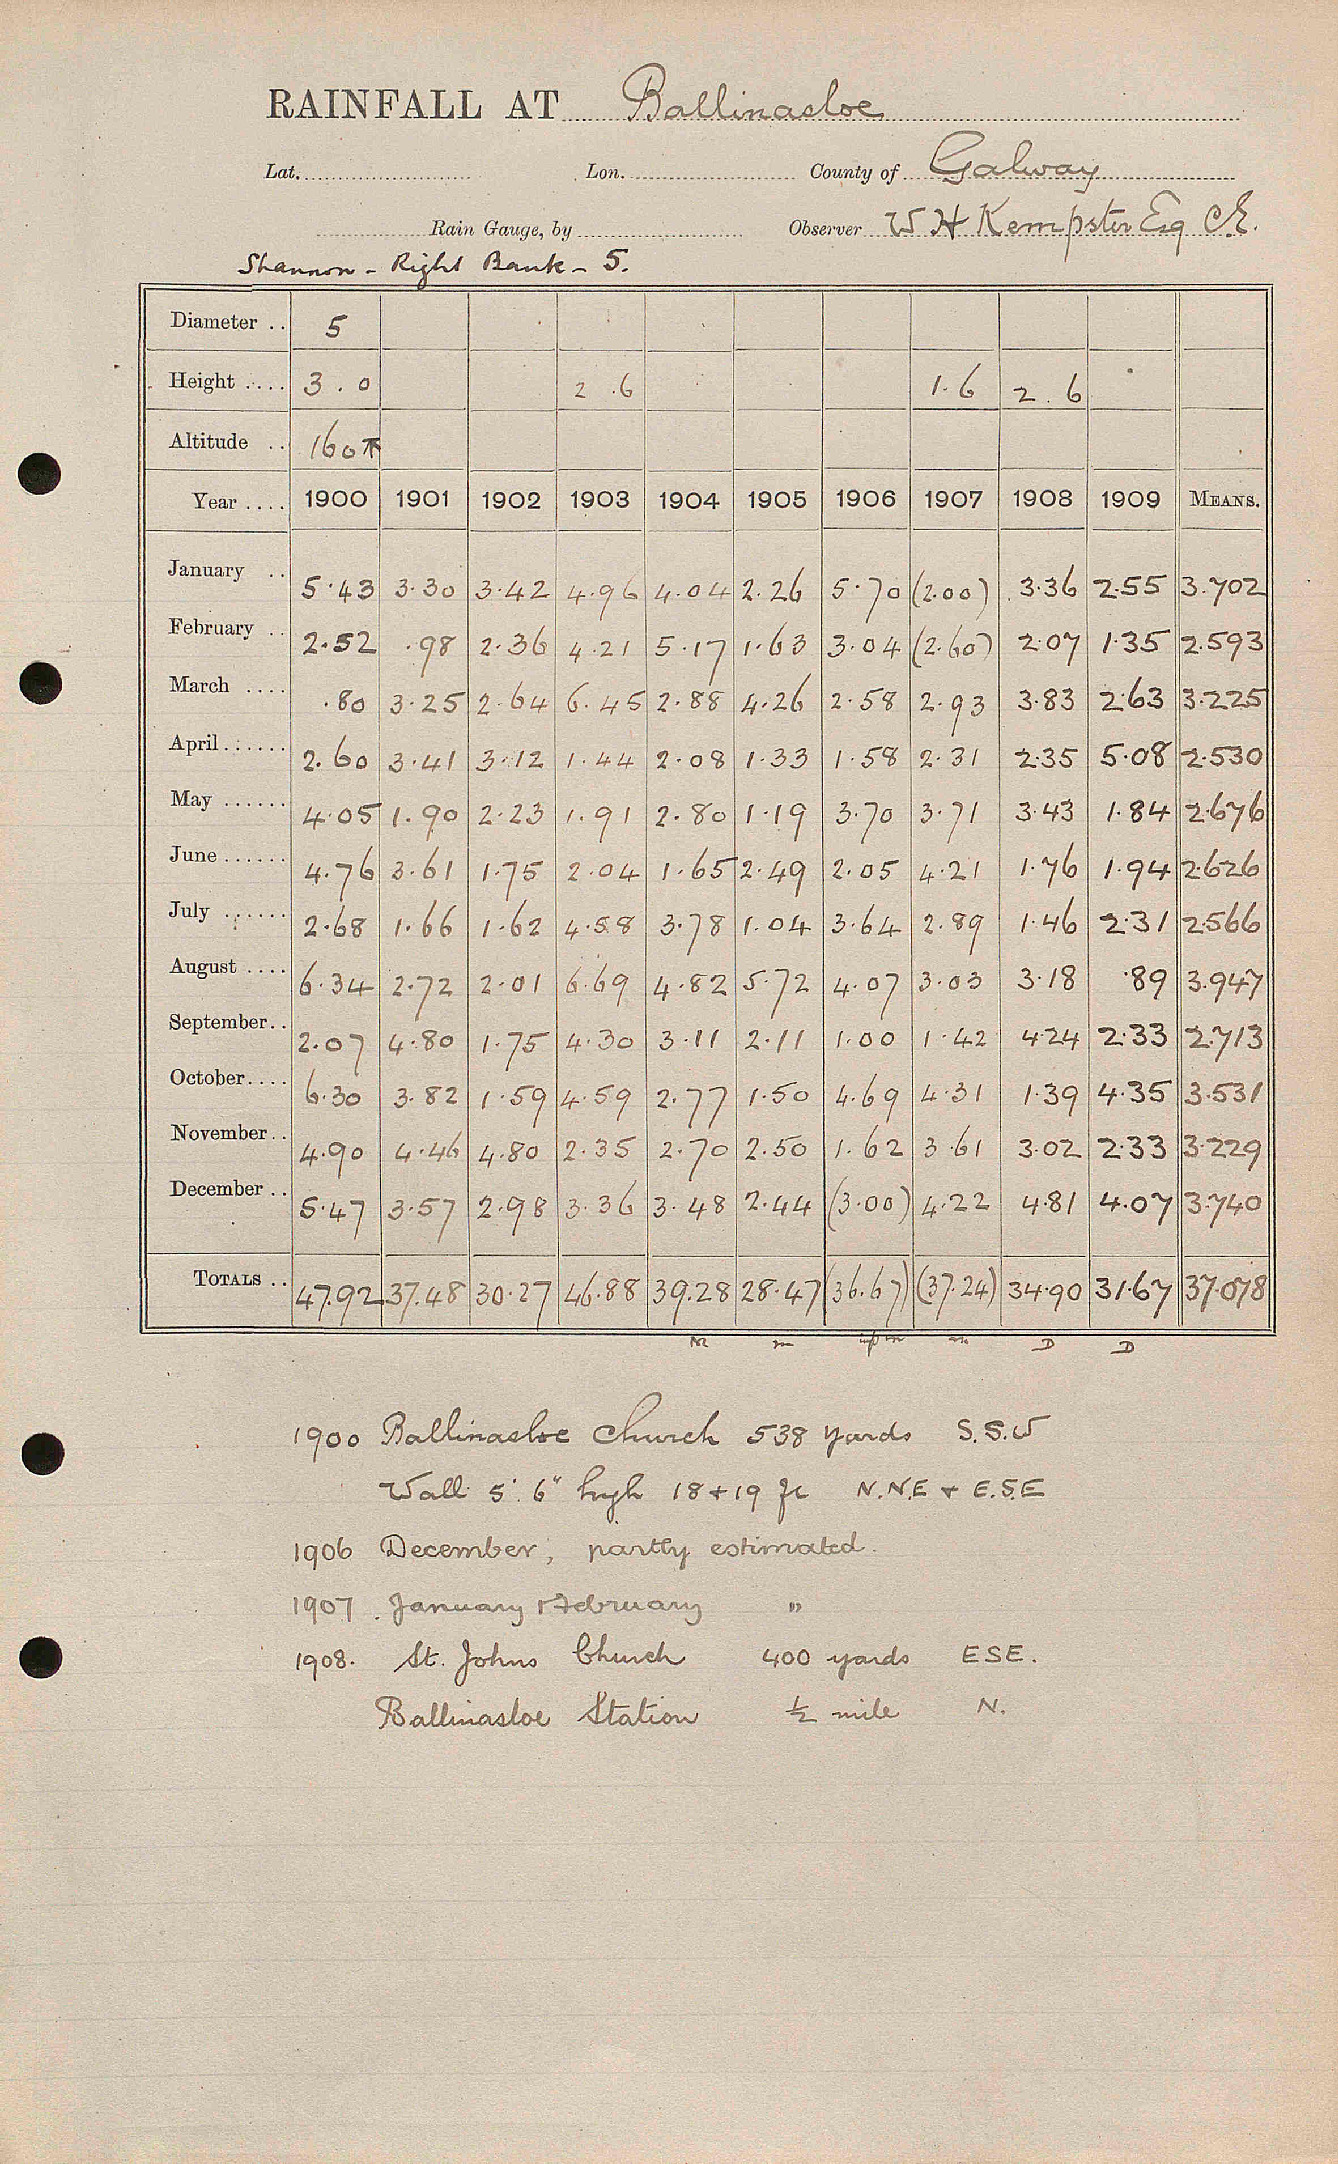 RAINFALL AT Ballinasloe
Lat. Lon. County of Galway
Rain Gauge, by Observer W H Kempster Esq C.E.
Shannon - Right Bank - 5.
Diameter .. 5
Height .... 3 . 0 2 . 6 1 . 6 2 . 6
Altitude .. 160
Year .... 1900 1901 1902 1903 1904 1905 1906 1907 1908 1909 MEANS.
January .. 5.43 3.30 3.42 4.96 4.04 2.26 5.70 (2.00) 3.36 2.55 3.702
February .. 2.52 .98 2.36 4.21 5.17 1.63 3.04 (2.60) 2.07 1.35 2.593
March .... .80 3.25 2.64 6.45 2.88 4.26 2.58 2.93 3.83 2.63 3.225
April ...... 2.60 3.41 3.12 1.44 2.08 1.33 1.58 2.31 2.35 5.08 2.530
May ...... 4.05 1.90 2.23 1.91 2.80 1.19 3.70 3.71 3.43 1.84 2.676
June ...... 4.76 3.61 1.75 2.04 1.65 2.49 2.05 4.21 1.76 1.94 2.626
July ...... 2.68 1.66 1.62 4.58 3.78 1.04 3.64 2.89 1.46 2.31 2.566
August .... 6.34 2.72 2.01 6.69 4.82 5.72 4.07 3.03 3.18 .89 3.947
September .. 2.07 4.80 1.75 4.30 3.11 2.11 1.00 1.42 4.24 2.33 2.713
October .... 6.30 3.82 1.59 4.59 2.77 1.50 4.69 4.31 1.39 4.35 3.531
November .. 4.90 4.46 4.80 2.35 2.70 2.50 1.62 3.61 3.02 2.33 3.229
December .. 5.47 3.57 2.98 3.36 3.48 2.44 (3.00) 4.22 4.81 4.07 3.740
TOTALS .. 47.92 37.48 30.27 46.88 39.28 28.47 (36.67) (37.24) 34.90 31.67 37.078
D D
1900 Ballinasloe Church 538 yards S.S.W
Wall 5' 6" high 18 + 19 ft N.N.E + E.S.E
1906 December, partly estimated.
1907 January + February "
1908. St. Johns Church 400 yards ESE.
Ballinasloe Station ½ mile N.